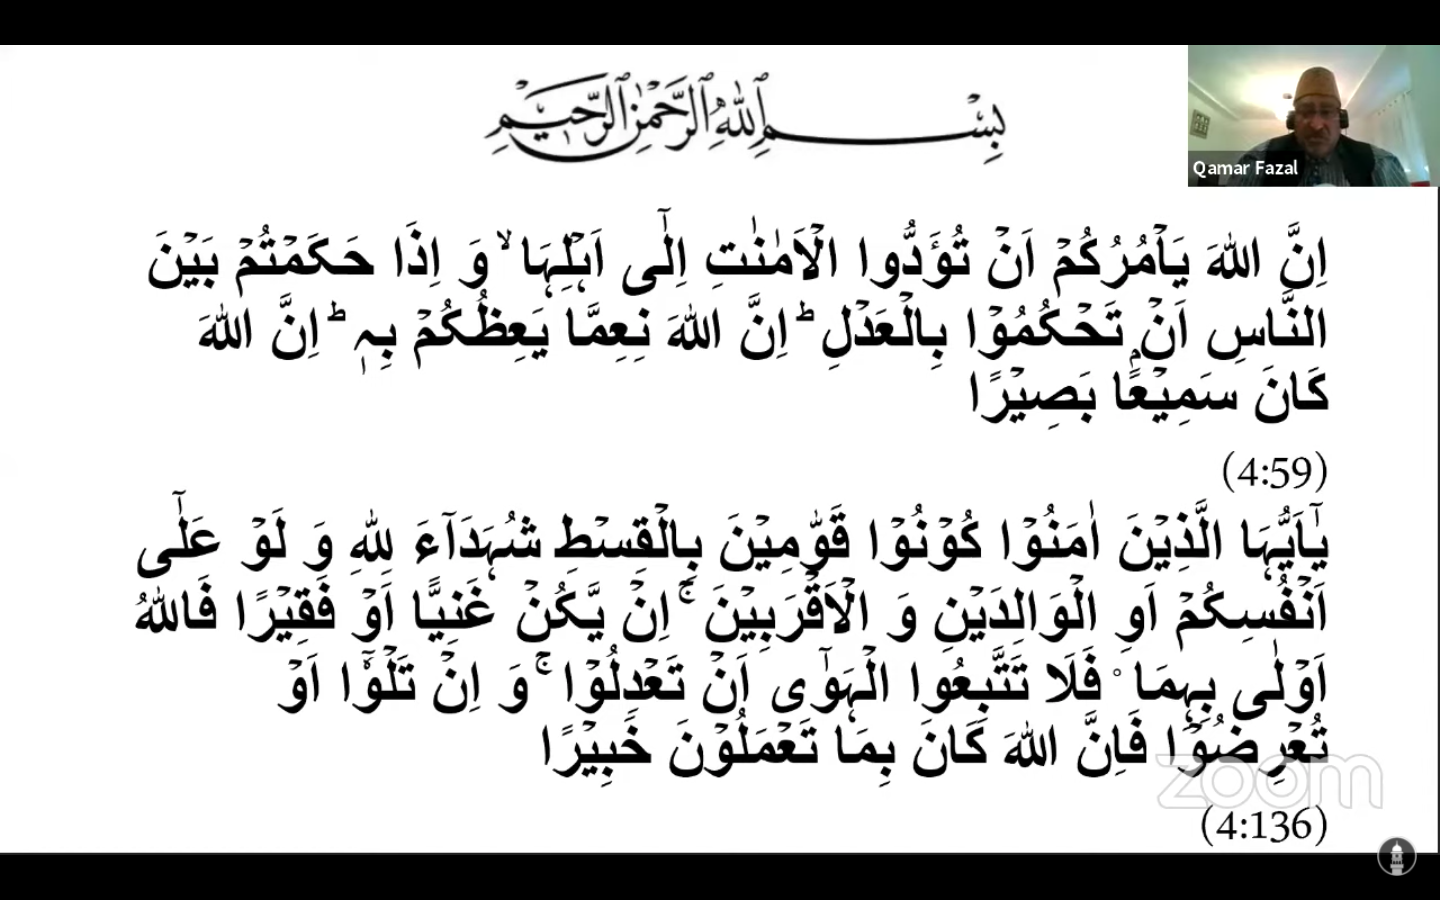 بِسْمِ اللهِ الرَّحْمٰنِ الرَّحِيْمِ
Qamar Fazal
اِنَّ اللهَ يَاْمُرُكُمْ اَنْ تُؤَدُّوا الْاَمٰنٰتِ اِلٰۤى اَہْلِہَا ۙ وَ اِذَا حَكَمْتُمْ بَيْنَ
النَّاسِ اَنْ تَحْكُمُوْا بِالْعَدْلِ ؕ اِنَّ اللهَ نِعِمَّا يَعِظُكُمْ بِہٖ ؕ اِنَّ اللهَ
كَانَ سَمِيْعًۢا بَصِيْرًا
(4:59)
يٰۤاَيُّہَا الَّذِيْنَ اٰمَنُوْا كُوْنُوْا قَوّٰمِيْنَ بِالْقِسْطِ شُہَدَآءَ لِلهِ وَ لَوْ عَلٰۤى
اَنْفُسِكُمْ اَوِ الْوَالِدَيْنِ وَ الْاَقْرَبِيْنَ ۚ اِنْ يَّكُنْ غَنِيًّا اَوْ فَقِيْرًا فَاللهُ
اَوْلٰى بِہِمَا ۟ فَلَا تَتَّبِعُوا الْہَوٰۤى اَنْ تَعْدِلُوْا ۚ وَ اِنْ تَلْوٗۤا اَوْ
تُعْرِضُوْا فَاِنَّ اللهَ كَانَ بِمَا تَعْمَلُوْنَ خَبِيْرًا
zoom
(4:136)